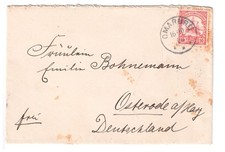 OMARURU
Fräulein
Emilie Bohnemann
Osterode a/Harz
frei
Deutschland